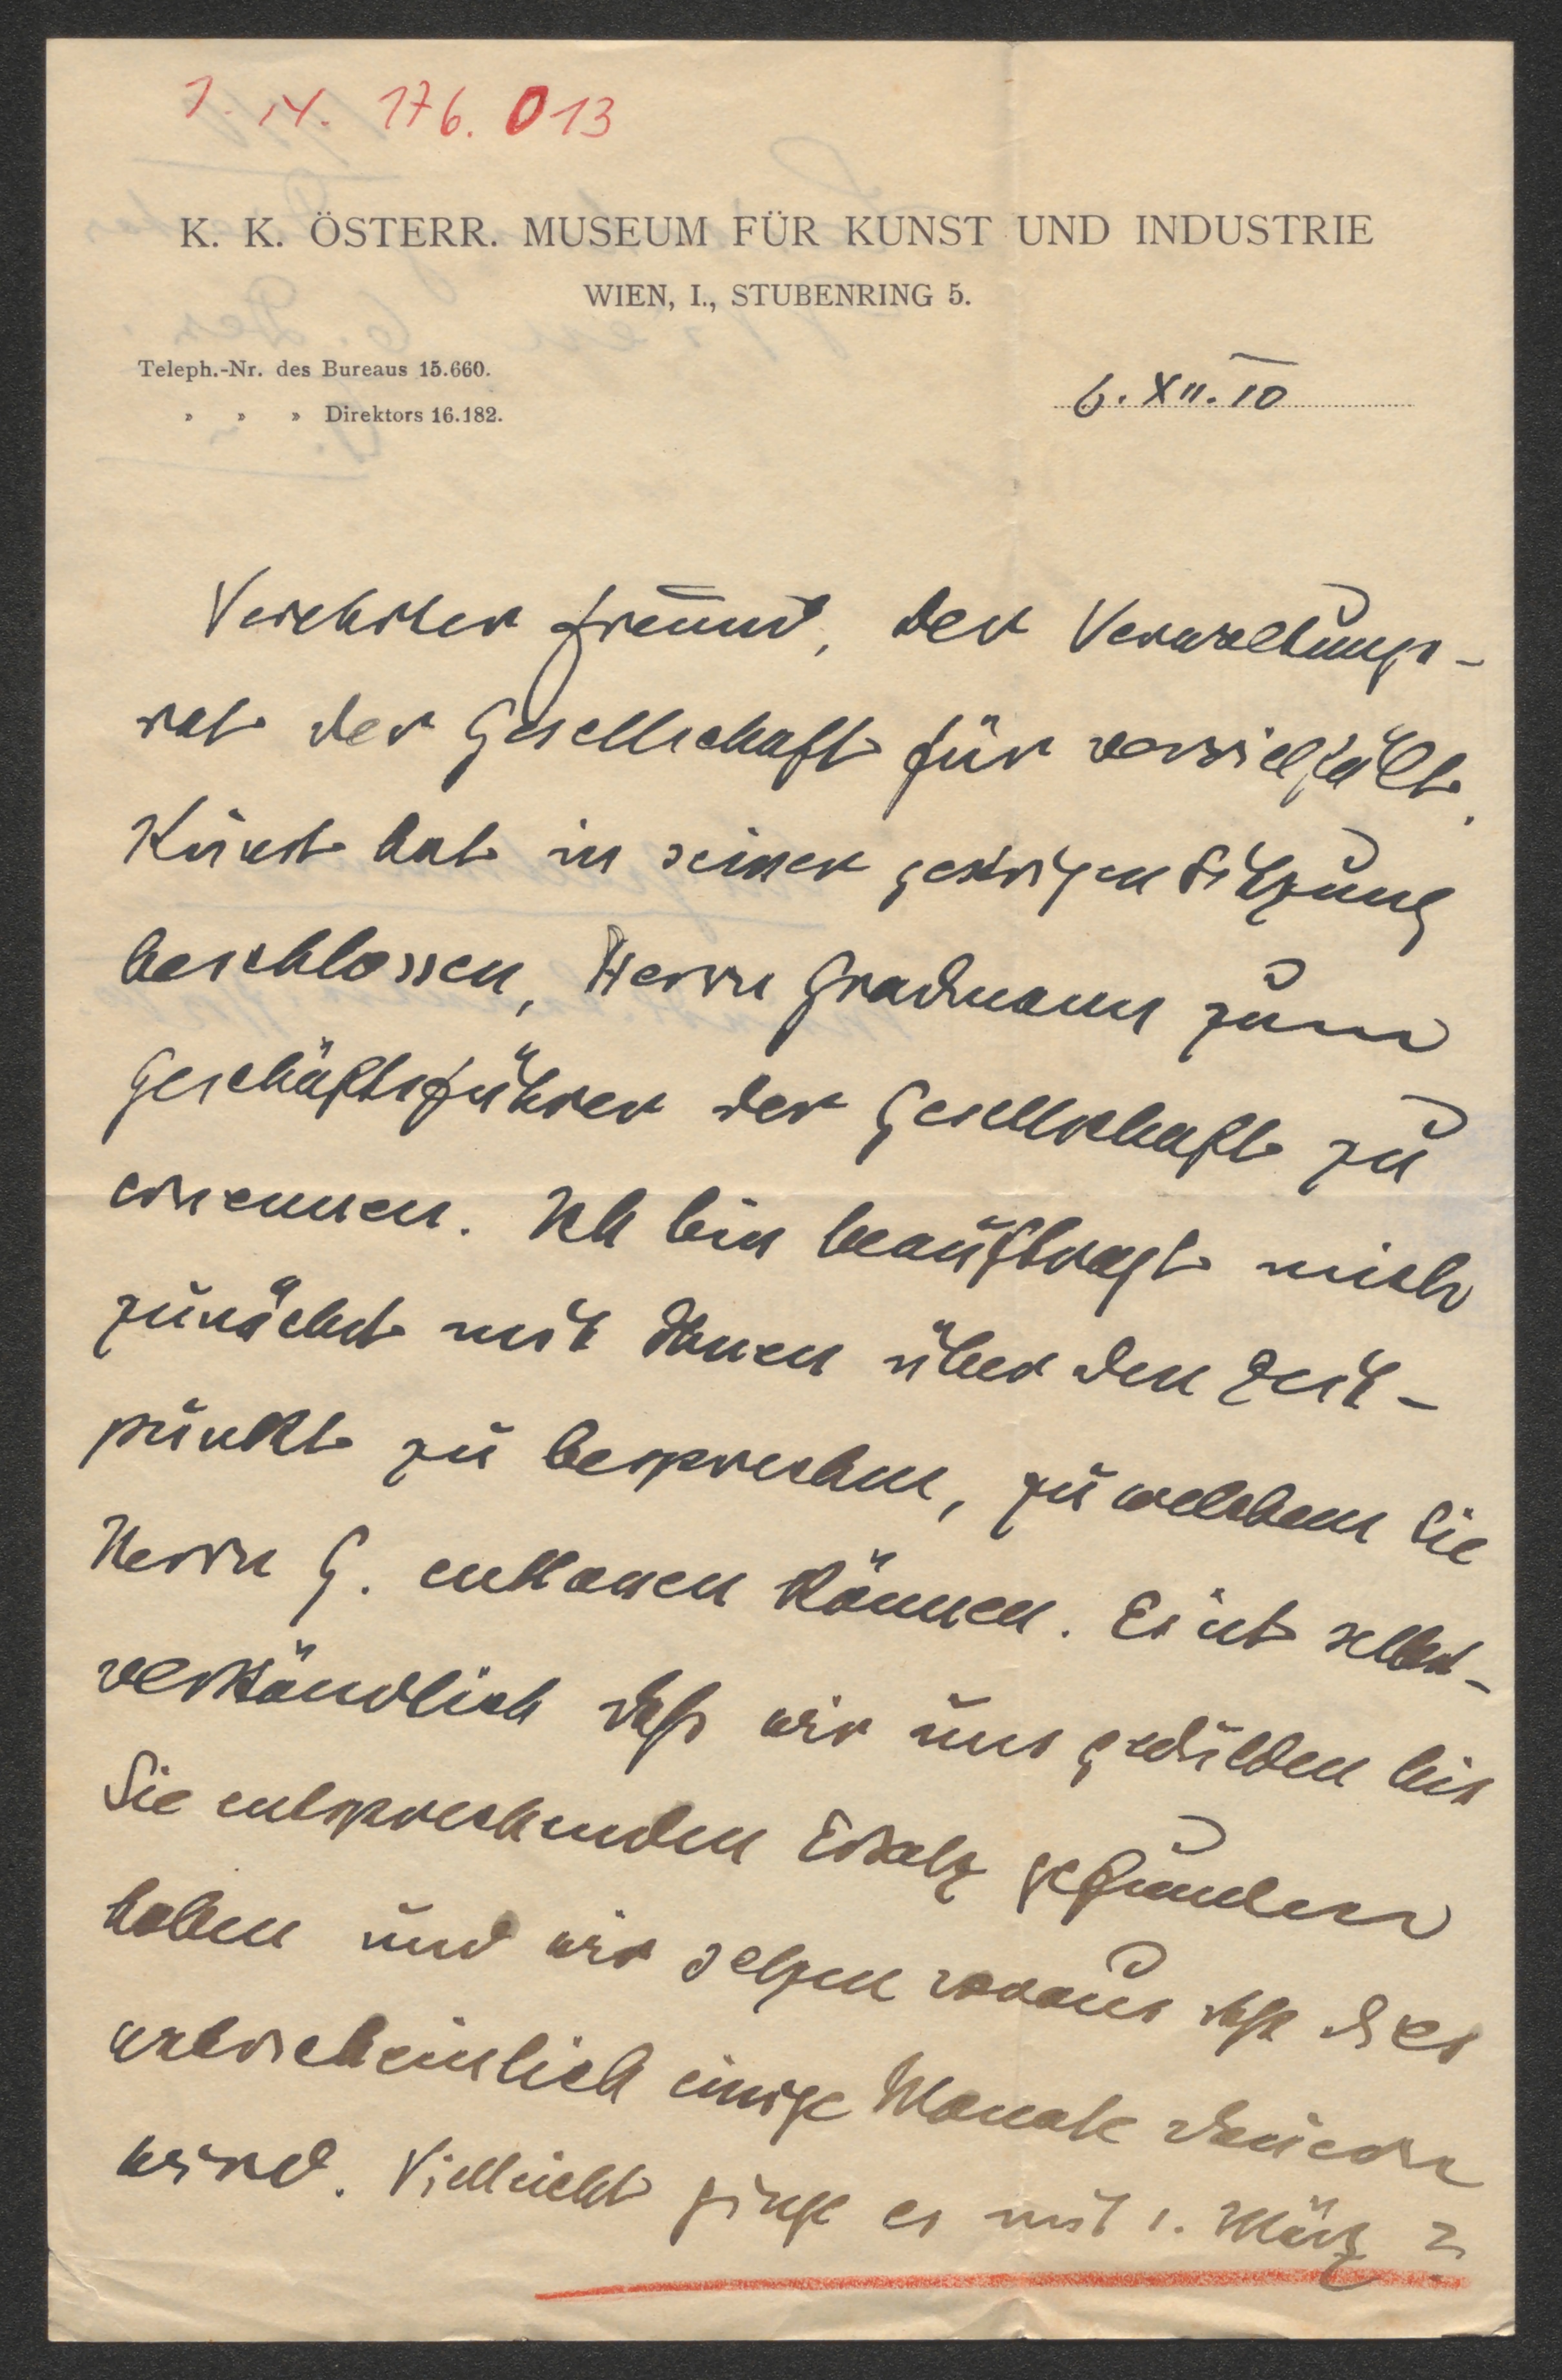 1. 14. 176. 013
K. K. ÖSTERR. MUSEUM FÜR KUNST UND INDUSTRIE
WIEN, I., STUBENRING 5.
Teleph.-Nr. des Bureaus 15.660.
6. XII. 10
» » » Direktors 16.182.
Verehrter Freund, der Verwaltungs-
rat der Gesellschaft für vervielfält.
Kunst hat in seiner gestrigen Sitzung
beschlossen, Herrn Gradmann zum
Geschäftsführer der Gesellschaft zu
ernennen. Ich bin beauftragt mich
zunächst mit Ihnen über den Zeit-
punkt zu besprechen, zu welchem Sie
Herrn G. entlassen können. Es ist selbst-
verständlich daß wir uns gedulden bis
Sie entsprechenden Ersatz gefunden
haben und wir setzen voraus daß dies
wahrscheinlich einige Monate dauern
wird. Vielleicht ginge es mit 1. März?